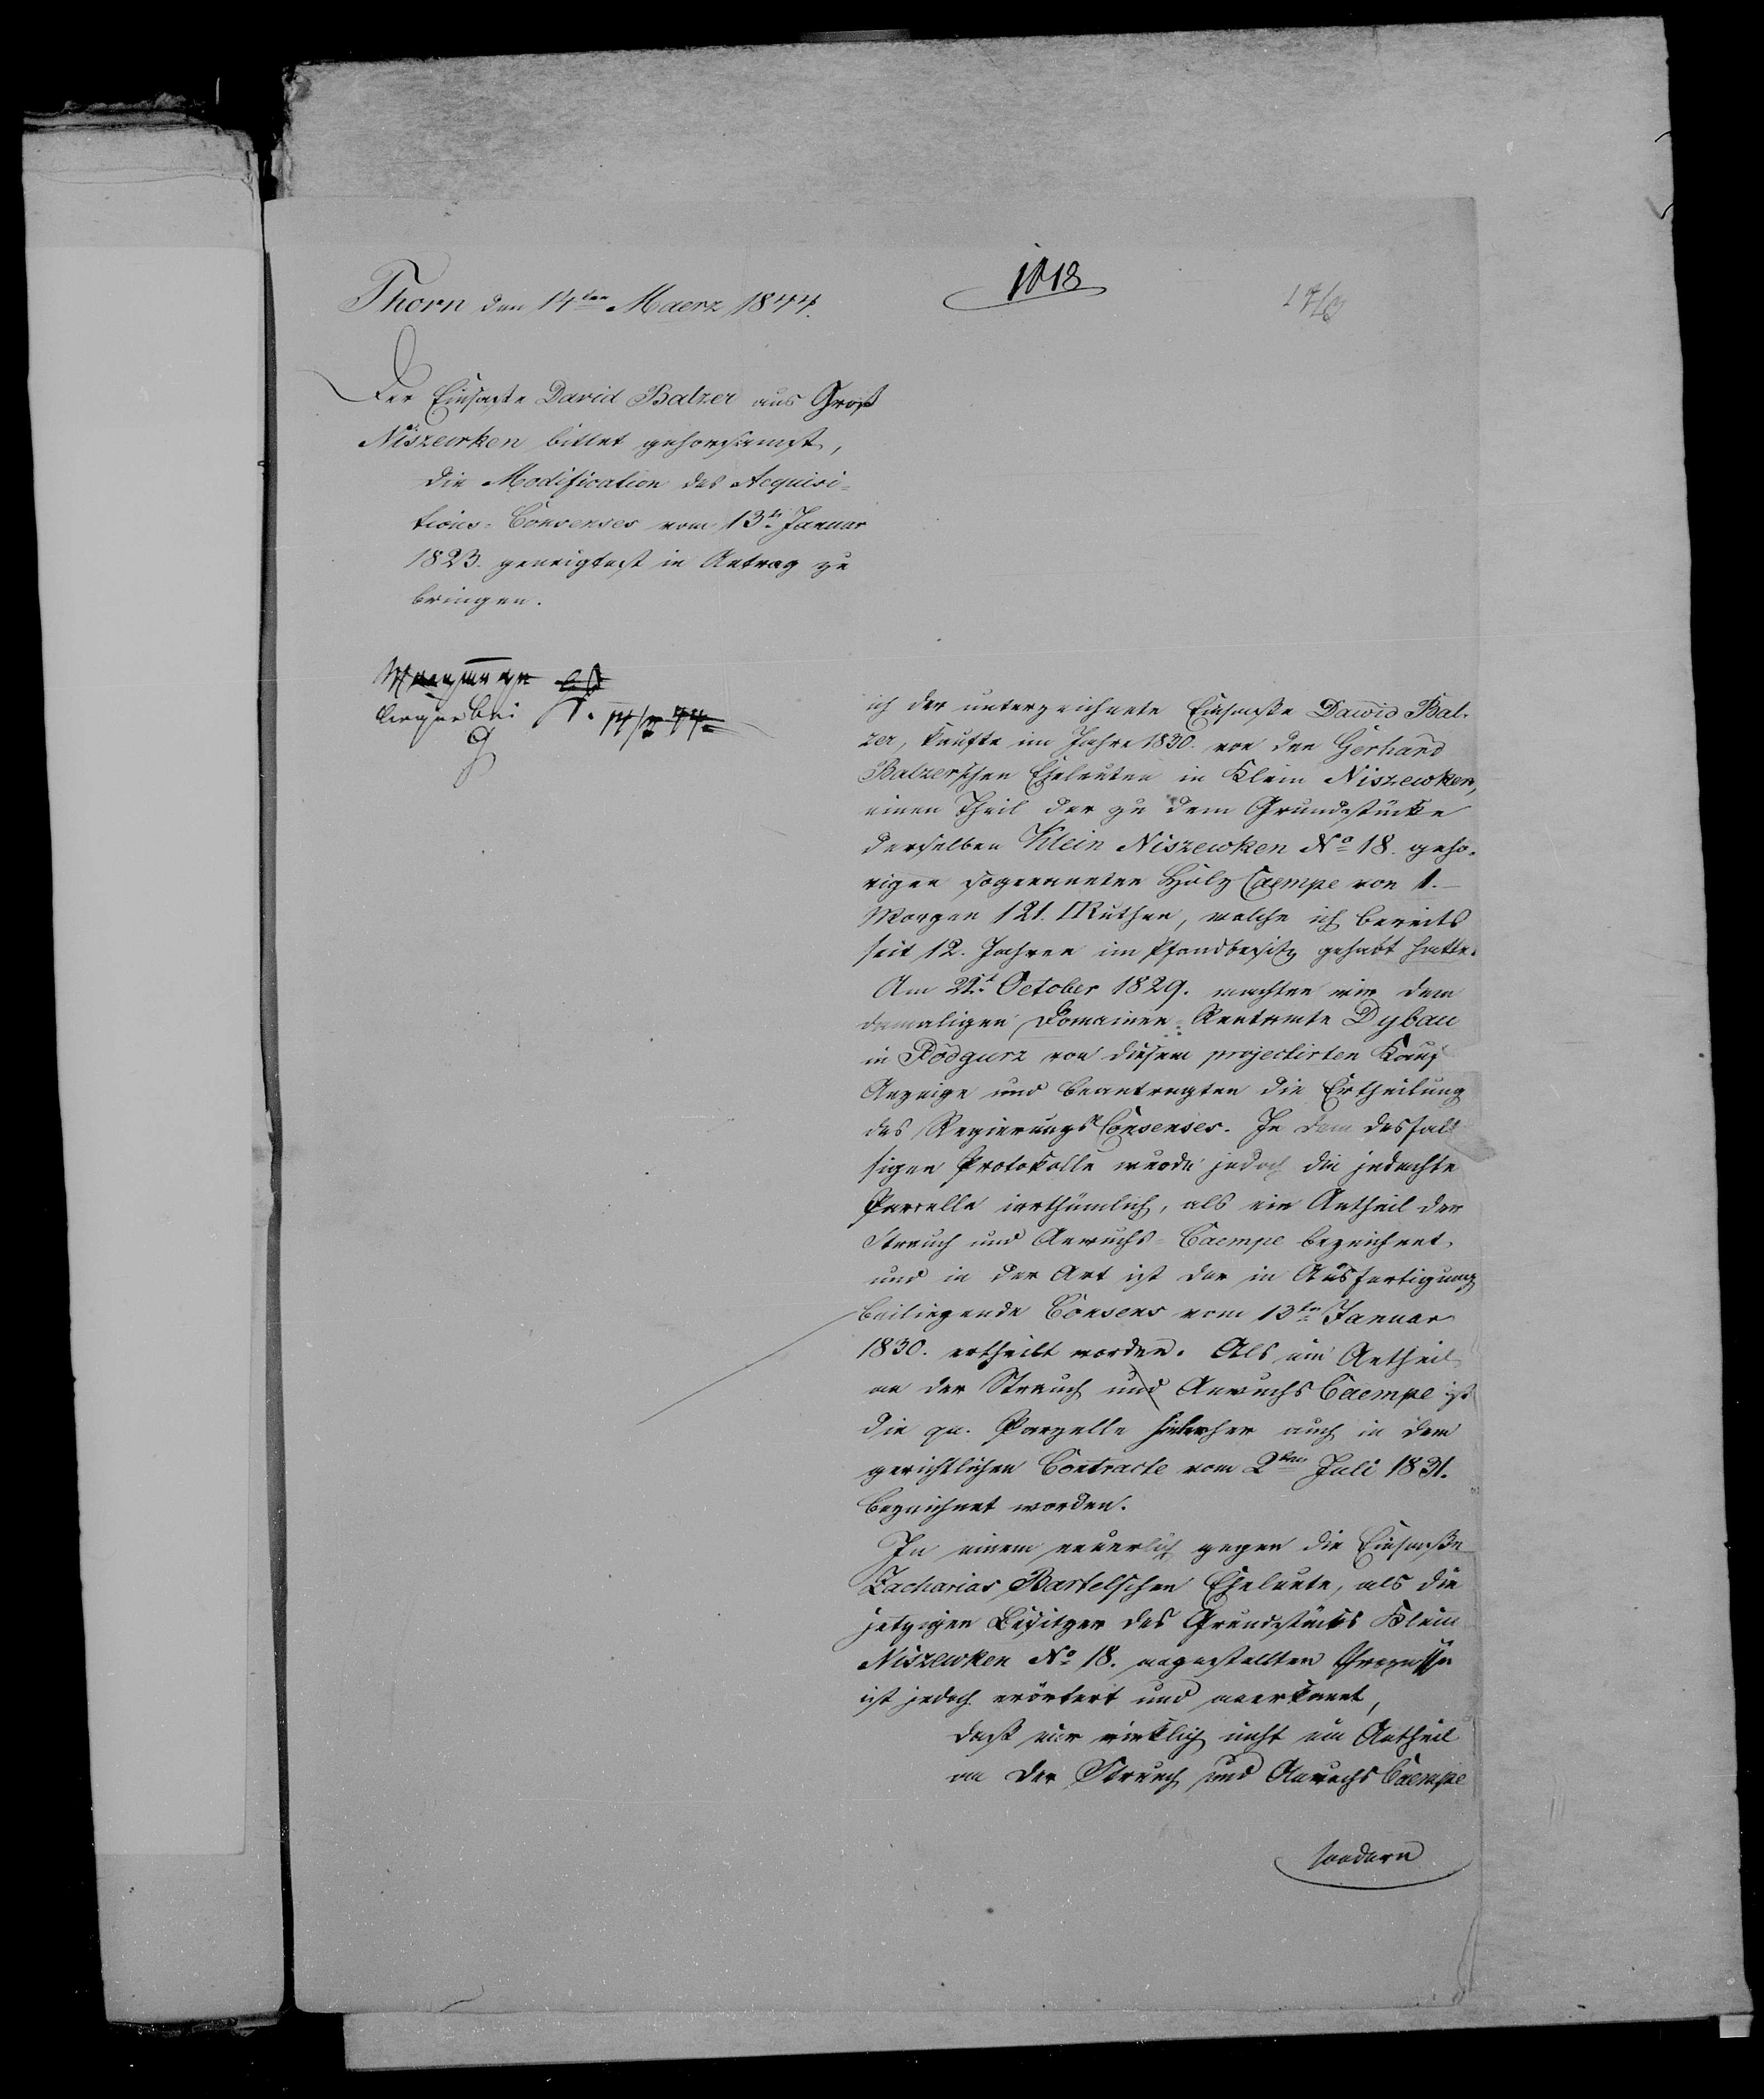 1818
Thorn den 14ten Maerz 1844.
Der Einsaße David Balzer aus Groß
Niszewken bittet gehorsamst,
die Modification des Acquisi-
tions-Consenses vom 13t Januar
1823. geneigtest in Antrag zu
bringen.
liegen bei
ich der unterzeichnete Einsaße Dawid Bal-
zer, kaufte im Jahre 1830. von den Gerhard
Balzerschen Eheleuten in Klein Niszewken,
einen Theil der zu dem Grundstücke
derselben Klein Niszewken No 18. geho-
rigen sogenannten Holz Caempe von 1.
Morgen 121. □Ruthen, welche ich bereits
seit 12. Jahren im Pfandbesitz gehabt hatte.
Am 21t October 1829. machten wir dem
damaligen Domainen-Rentamte Dybau
in Podgurz von diesem projectirten Kauf
Anzeige und beantragten die Ertheilung
des Regierungs Consenses. In dem desfal
sigen Protokolle wurde jedoch die gedachte
Parcelle irrthümlich, als ein Antheil der
Strauch und Anwuchs-Caempe bezeichnet,
und in der Art ist der in Ausfertigung
beiliegende Consens vom 13ten Januar
1830. ertheilt worden. Als ein Antheil
an der Strauch und Anwuchs Caempe ist
die qu. Parzelle hieher auch in dem
gerichtlichen Contracte vom 2ten Juli 1831.
bezeichnet worden.
In einem neuerlich gegen die Einsaße
Zacharias Bartelschen Eheleute, als die
jetzigen Besitzer des Grundstücks Klein
Niszewken No 18. angestellten Prozesse
ist jedoch erörtert und anerkannt,
daß mir wirklich nicht ein Antheil
an der Strauch und Anwuchs Caempe
sondern